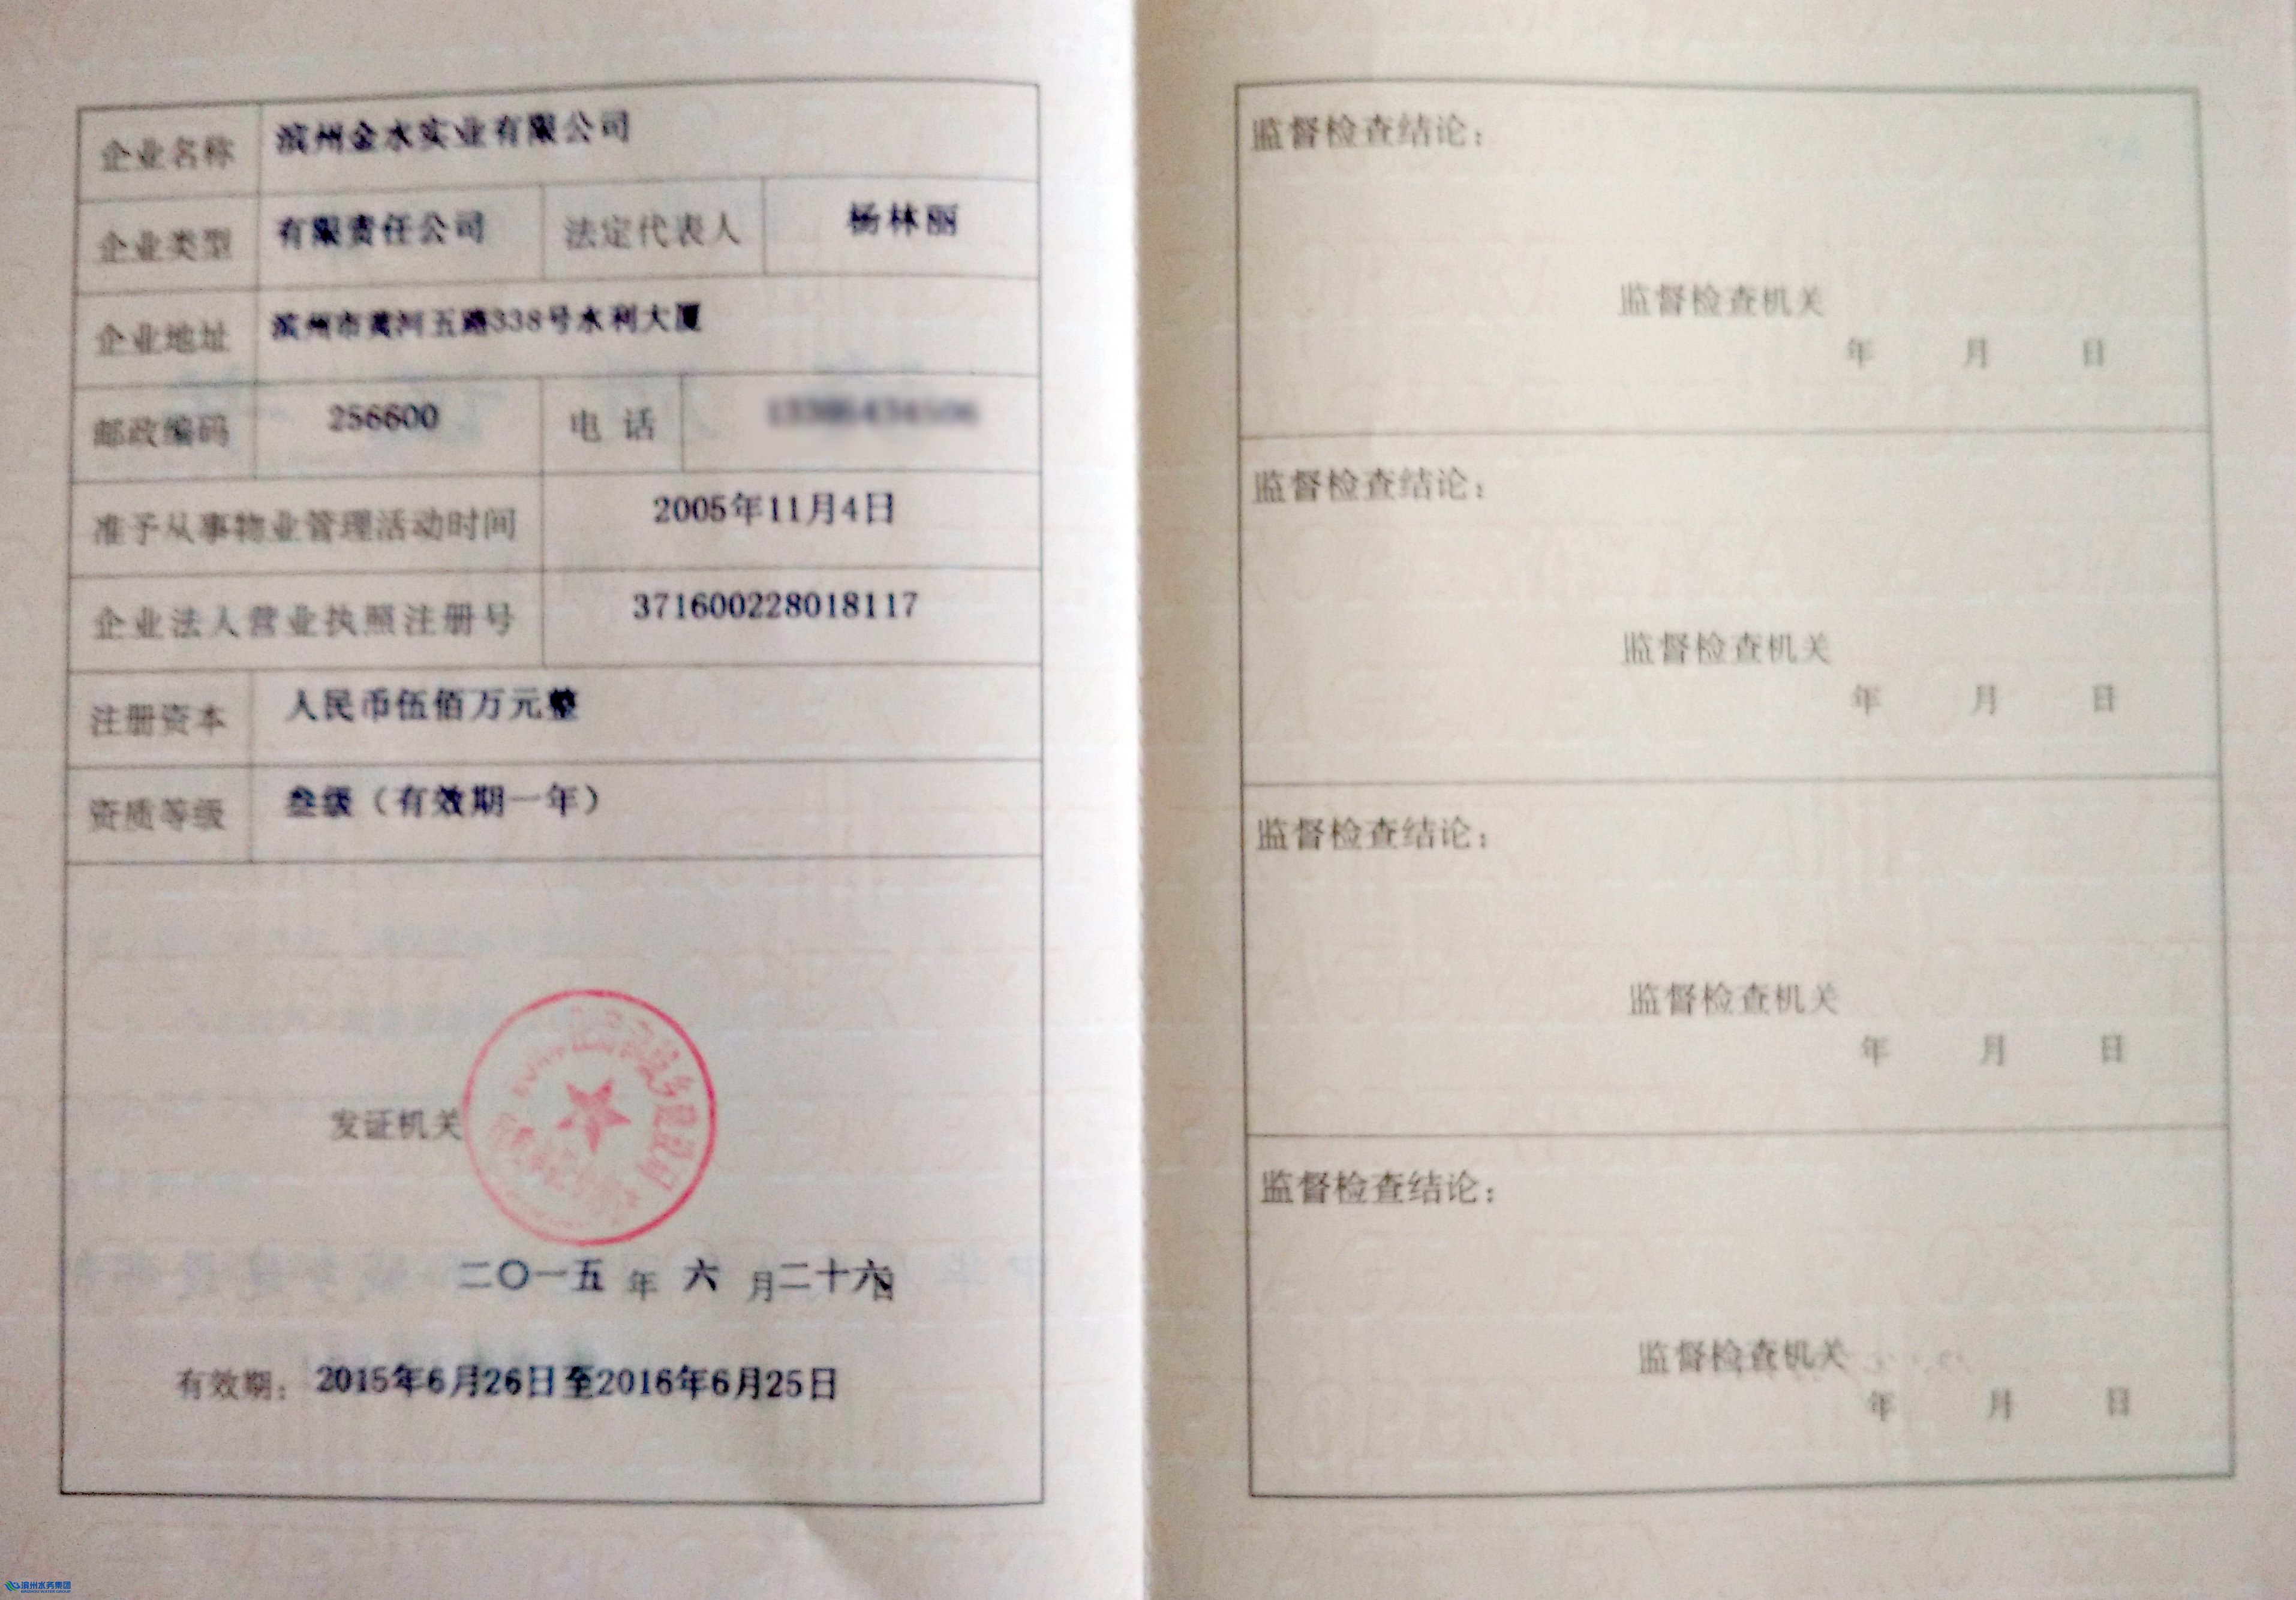 企业名称 滨州金水实业有限公司
企业类型 有限责任公司 法定代表人 杨林丽
企业地址 滨州市黄河五路338号水利大厦
邮政编码 256600 电 话
准予从事物业管理活动时间 2005年11月4日
企业法人营业执照注册号 371600228018117
注册资本 人民币伍佰万元整
资质等级 叁级（有效期一年）
发证机关
城乡建设局
二〇一五 年 六 月二十六日
有效期： 2015年6月26日至2016年6月25日
监督检查结论：
监督检查机关
年 月 日
监督检查结论：
监督检查机关
年 月 日
监督检查结论：
监督检查机关
年 月 日
监督检查结论：
监督检查机关
年 月 日
滨州水务集团